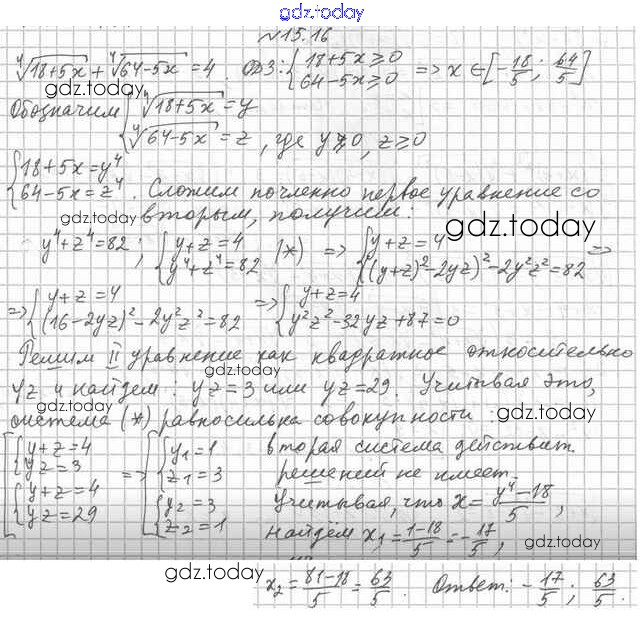 gdz.today
№15.16
⁴√(18+5x) + ⁴√(64-5x) = 4. ОДЗ: { 18+5x ≥ 0 64-5x ≥ 0 => x ∈ [-18/5; 64/5]
gdz.today
Обозначим { ⁴√(18+5x) = y ⁴√(64-5x) = z, где y ≥ 0, z ≥ 0
{ 18+5x = y⁴ 64-5x = z⁴. Сложим почленно первое уравнение со
gdz.today вторым, получим: gdz.today
y⁴+z⁴=82; { y+z=4 y⁴+z⁴=82 (*) => { y+z=4 ((y+z)²-2yz)²-2y²z²=82 =>
gdz.today
=> { y+z=4 (16-2yz)²-2y²z²=82 => { y+z=4 y²z²-32yz+87=0
Решим II уравнение как квадратное относительно
gdz.today
yz и найдем: yz=3 или yz=29. Учитывая это,
gdz.today gdz.today
система (*) равносильна совокупности:
[ { y+z=4 yz=3 { y+z=4 yz=29 => [ { y₁=1 z₁=3 { y₂=3 z₂=1
вторая система действит.
решений не имеет.
Учитывая, что x = (y⁴-18)/5,
найдём x₁ = (1-18)/5 = -17/5,
gdz.today
gdz.today
x₂ = (81-18)/5 = 63/5. Ответ: -17/5; 63/5.
gdz.today